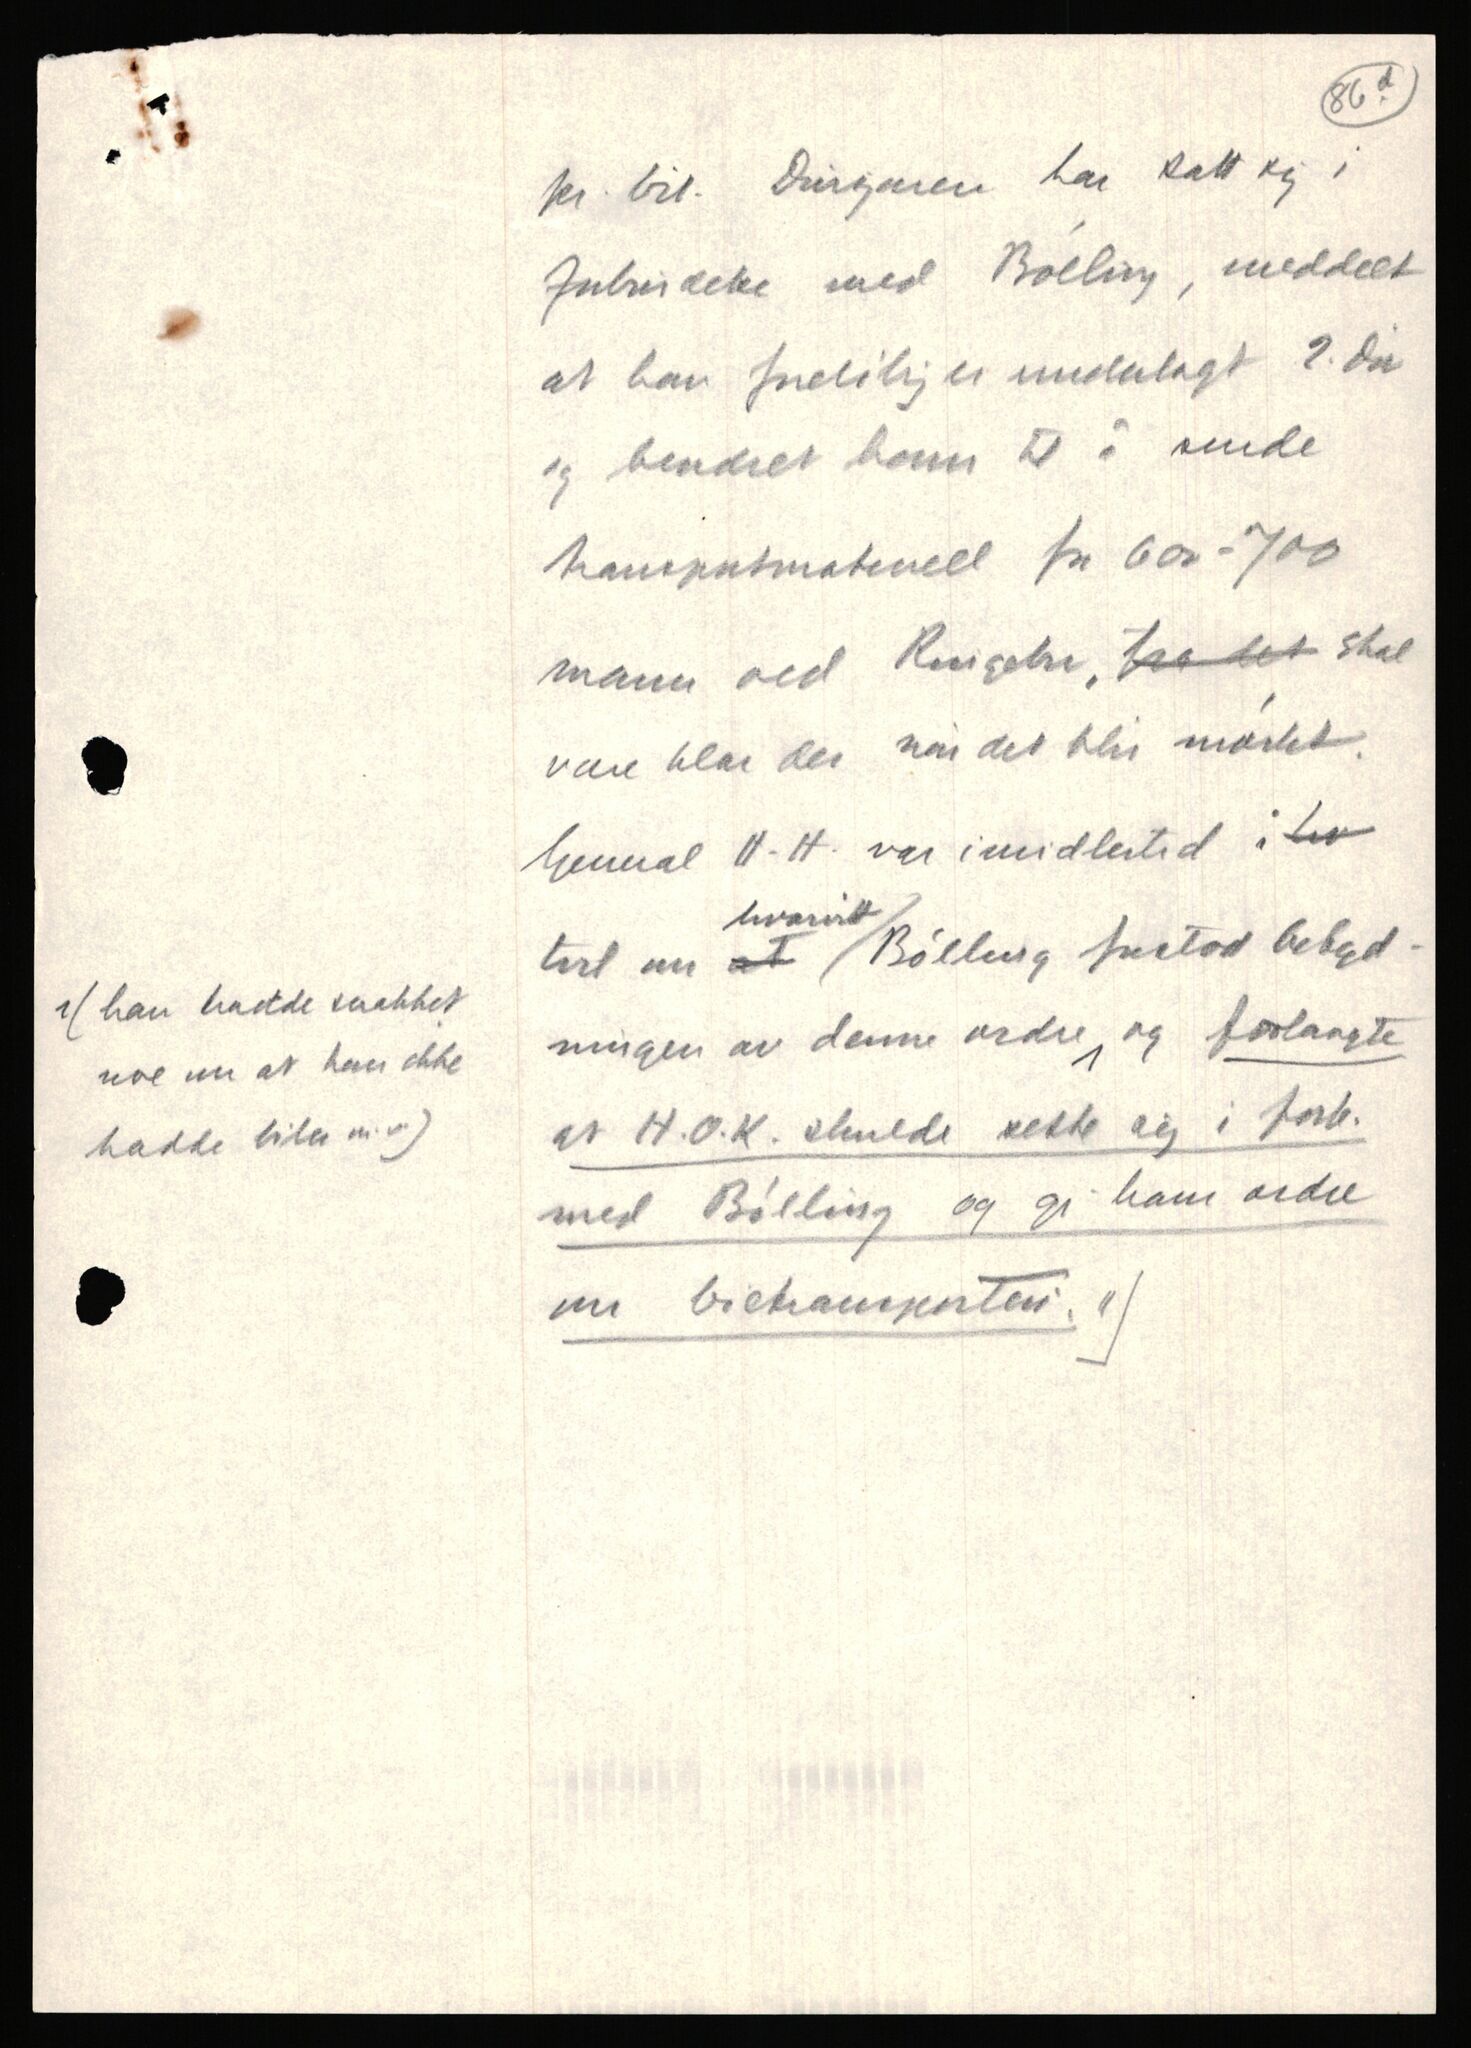 86 d.
pr. bil. Divisjonen har satt sig i
forbindelse med Bölling, meddelt
at han foreløbig er underlagt 2. Div
og beordret ham til å sende
transportmateriell for 600-700
mann ved Ringebu, fra det skal
være klar der når det blir mörkt.
General H-H. var imidlertid i hv
tvil om at hvorvidt Bölling forstod betyd-
ningen av denne ordre, og forlangte
1( han hadde snakket
noe om at han ikke
hadde biler m.v.)
at H.O.K. skulde sette sig i forb.
med Bölling og gi ham ordre
om biltransporten."]